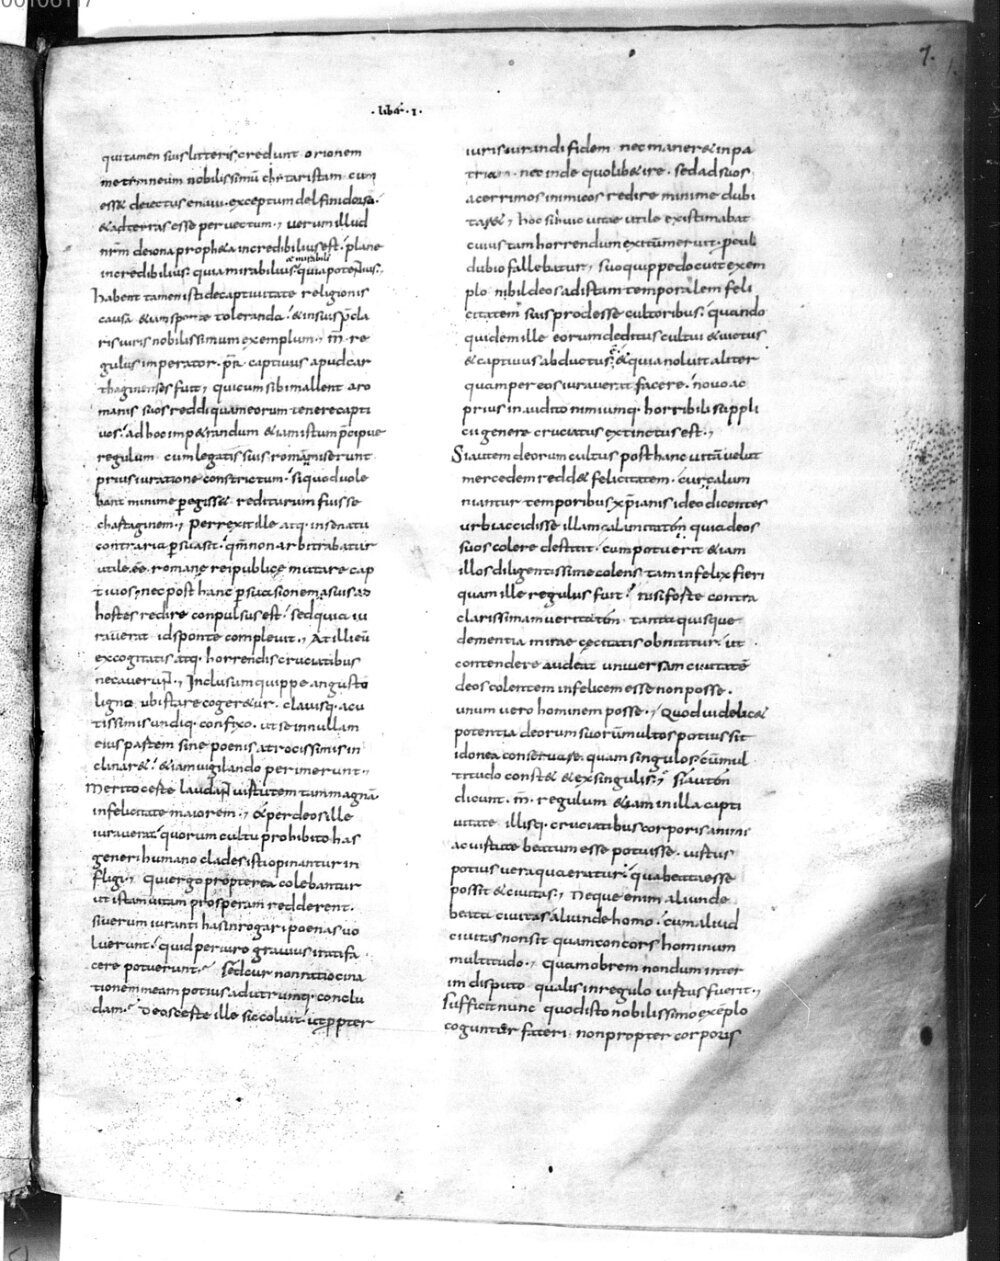 7.
· lib̄ · I ·
qui tamen suis litteris credunt orionem
metemneum nobilissimū chitaristam cum
esset deiectus e naui. exceptum delfini dorso.
& ad terras esse peruectum; uerum illud
nr̄m de iona propheta incredibilius est. plane
& mirabili
incredibilius. quia mirabilius. quia potentius;
habent tamen isti de captiuitate religionis
causa etiam sponte toleranda. & in suis p̄cla
ris uiris nobilissimum exemplum; m̄. re
gulus imperator. p̄r. captiuus apud car
thaginenses fuit; qui cum sibi mallent a ro
manis suos reddi quam eorum tenere capti
uos. ad hoc impetrandum etiam istum p̄cipue
regulum cum legatis suis romam miserunt
prius iuratione constrictum. si quod uole
bant minime pegisset rediturum fuisse
chartaginem; perrexit ille atq. in senatu
contraria psuasit. qm̄ non arbitrabatur
utile. ēē. romane rei publice mutare cap
tiuos; nec post hanc psuasionem a suis ad
hostes redire conpulsus est. sed quia iu
rauerat id sponte compleuit; at illi eū
excogitatis atq. horrendis cruciatibus
necauerunt; Inclusum quippe angusto
ligno ubi stare cogeretur. clauisq. acu
tissimis undiq. confixo. ut se in nullam
eius partem sine poenis atrocissimis in
clinaret. etiam uigilando perimerunt;
Merito certe laudant uirtutem tam magna
infelicitate maiorem; & per deos ille
iurauerat quorum cultu prohibito has
generi humano clades isti opinantur in
fligi; qui ergo propterea colebantur
ut istam uitam prosperam redderent.
si uerum iuranti has inrogari poenas uo
luerunt. quid periuro grauius irati fa
cere potuerunt. Sed cur non ratiocina
tionem meam potius ad utrumq. conclu
dam. Deos certe ille sic coluit. ut ppter
iuris iurandi fidem nec maneret in pa
tria. nec inde quolibet ire. sed ad suos
acerrimos inimicos redire minime dubi
taret; hoc si huic uitae utile existimabat
cuius tam horrendum exitum meruit. pcul
dubio fallebatur; suo quippe docuit exem
plo nihil deos ad istam temporalem feli
citatem suis prodesse cultoribus. quando
quidem ille eorum deditus cultui & uictus
& captiuus abductus. & quia noluit aliter
quam per eos iurauerat facere. nouo ac
prius inaudito nimiumq. horribili suppli
cii genere cruciatus extinctus est;
Si autem deorum cultus post hanc uitā uelut
mercedem reddet felicitatem. cur calum
niantur temporibus xp̄ianis ideo dicentes
urbi accidisse illam calamitatem quia deos
suos colere destitit. cum potuerit etiam
illos diligentissime colens tam infelix fieri
quam ille regulus fuit. nisi forte contra
clarissimam ueritatem. tanta quisque
dementia mirae cęcitatis obnititur. ut
contendere audeat uniuersam ciuitatē
deos colentem infelicem esse non posse.
unum uero hominem posse; Quod uidelicet
potentia deorum suorum multos potius sit
idonea conseruare. quam singulos. cū mul
titudo constet ex singulis; si autem
dicunt. m̄. regulum etiam in illa capti
uitate illisq. cruciatibus corporis animi
ac uirtute beatum esse potuisse. uirtus
potius uera quaeratur. qua beata esse
possit & ciuitas; Neque enim aliunde
beata ciuitas aliunde homo. cum aliud
ciuitas non sit quam concors hominum
multitudo; quam obrem nondum inter
im disputo qualis in regulo uirtus fuerit;
sufficit nunc quod isto nobilissimo exēplo
coguntur fateri non propter corporis